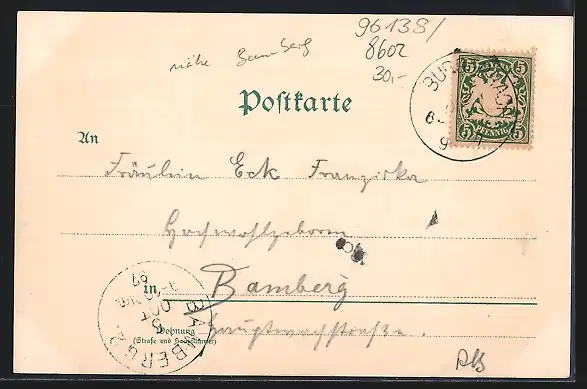 96138/
8602
30,-
nähe Bamberg
Postkarte
BAYERN
5 5
PFENNIG
5 5
An
Fräulein Eck Franziska
Hochwohlgeboren
in, Bamberg
Hauptwachstraße.
Wohnung
(Straße und Hausnummer)
BAMBERG 2
OCT
97